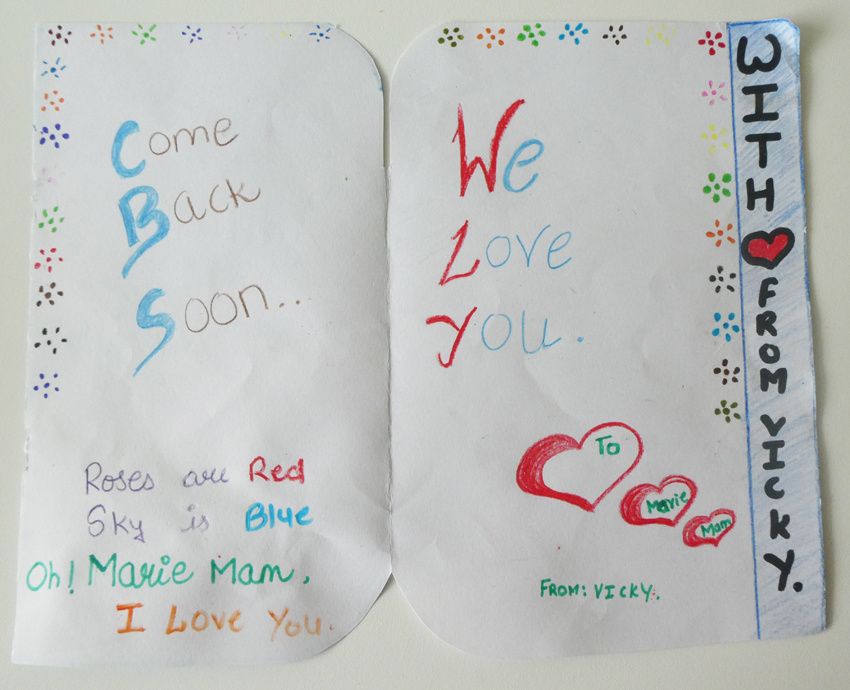 Come
Back
Soon...
Roses are Red
Sky is Blue
Oh! Marie Mam,
I Love You.
We
Love
You.
To
Marie
Mam
FROM: VICKY.
WITH ❤ FROM VICKY.